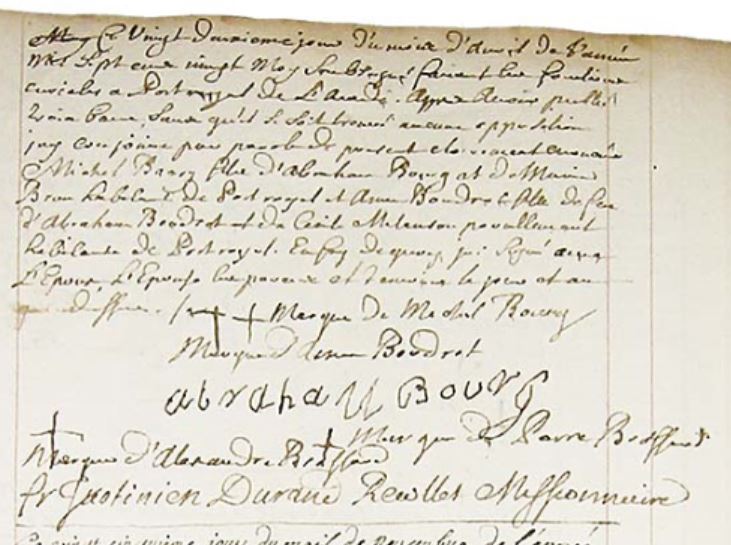 Ce Vingt Deuxieme jour Du mois d'avril de l'année
Mil Sept cens vingt Moy Soubsigné faisant les fonctions
curiales a Portroyal de L'acadie. Apres Avoir publié
trois bans, Sans qu'il Se Soit trouvé aucune opposition
jay conjoint par parole de present
Michel Bourg fils d'Abraham Bourg et de Marie
Brun habitant de Port royal et Anne Boudrot fille de feu
d'Abraham Boudrot et de Cecile Melenson pareillement
habitante de Port royal. En foy de quoy j'ai Signé avec
L'Epoux, L'Epouse les parens et temoins le jour et an
que dessus.
Marque De Michel Bourg
Marque d'anne Boudrot
abraham Bourg
Marque De Pierre Broussard
Marque D'Alexandre Broussard
fr Justinien Durand Recollet Missionnaire
jour du mois de novembre de l'année